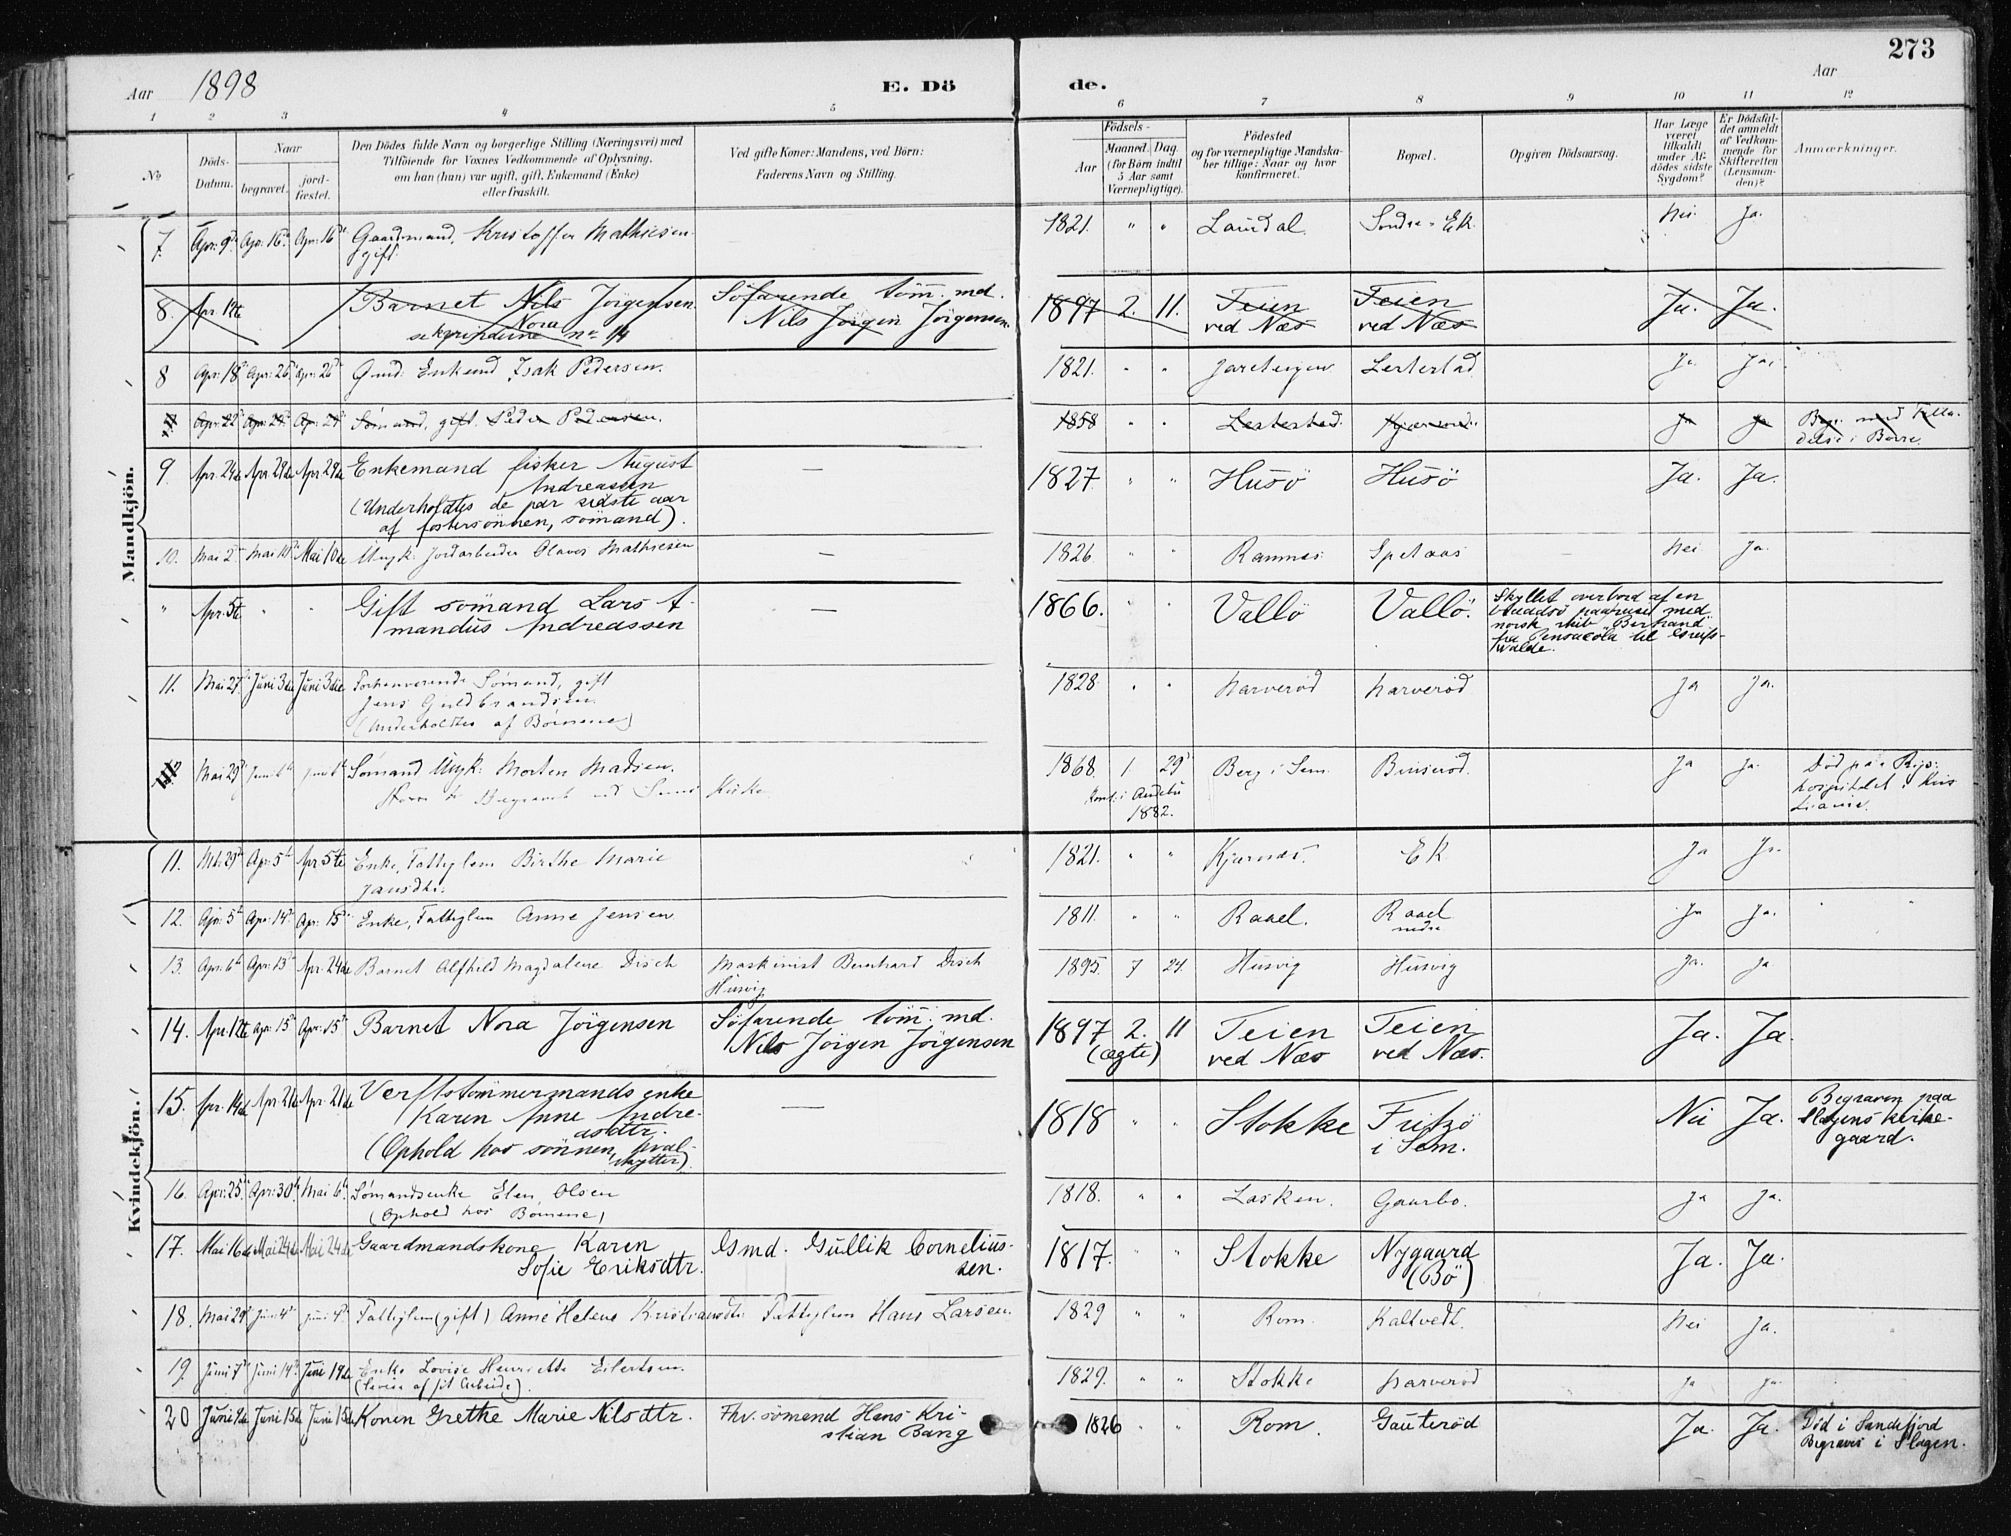 273
Aar 1898
E. Dö
de.
Aar
1 2 3 4 5 6 7 8 9 10 11 12
No
Döds-
Datum.
Naar
begravet.
jord-
fæstet.
Den Dödes fulde Navn og borgerlige Stilling (Næringsvei) med
Tilföiende for Voxnes Vedkommende af Oplysning,
om han (hun) var ugift, gift, Enkemand (Enke)
eller fraskilt.
Ved gifte Koner: Mandens, ved Börn:
Faderens Navn og Stilling.
Födsels-
Aar
Maaned. Dag.
(for Börn indtil
5 Aar samt
Værnepligtige).
Födested
og for værnepligtige Mandska-
ber tillige: Naar og hvor
konfirmeret.
Bopæl.
Opgiven Dödsaarsag.
Har Læge
været
tilkaldt
under Af-
dödes sidste
Sygdom?
Er Dödsfal-
det anmeldt
af Vedkom-
mende for
Skifteretten
(Lensman-
den)?
Anmærkninger.
Mandkjön.
7. Apr. 9 Apr. 16 Apr. 16 Gaardmand, Kristoffer Mathiesen 1821. " " Laudal Søndre Ek Nei Ja.
gift
8. Apr 12te Barnet Nils Jörgensen Söfarende töm. md. 1897 2. 11. Teien Teien Ja. Ja.
Nora
se kvinderne nr 14 Nils Jörgen Jörgensen. ved Næs ved Næs
8 Apr. 18 Apr. 26 Apr. 26 Gmd. Enkemd Isak Pedersen. 1821. " " Jareteigen Lertestad Ja Ja
Apr. 22 Sømand, gift Peder Pedersen. 1858 " " Lertestad Ja Ja
i Borre
9 Apr. 24de Apr 29de Apr 29de Enkemand fisker August — 1827 " " Husö Husö Ja. Ja.
Andreassen
(Underholdtes de par sidste aar
af fostersönnen, sömand).
10. Mai 2 Mai 10 Mai 10de Ungk. Jordarbeider Olaves Mathiesen — 1826 " " Ramnes Spetaas Nei Ja.
" Apr. 5te " " Gift sömand Lars A- — 1866. " " Vallö Vallö. Skyllet overbord af en
mandus Andreassen
norsk skib "Bertrand"
fra Pensacola til Greifs-
walde.
11. Mai 27 Juni 3die Juni 3die Forhenværende Sømand, gift 1828 " " Narverød Narverød Ja Ja.
Jens Guldbrandsen
(Underholdtes af Børnene)
Mai 29 Sømand Ungk. Morten Madsen. 1868 1 29 Berg i Sem. Ja Ja. Død på Rigs-
Konf. i Andebu
1882.
hospitalet i Kris
tiania.
Kvindekjön.
11. Mts 29 Apr. 5 Apr 5te Enke, Fattiglem Birthe Marie 1821. " " Kjærnæs. Ek Ja Ja
Jansdtr.
12. Apr. 5 Apr 14 Apr. 15 Enke, Fattiglem Anne Jensen 1811. " " Raael. Raael Ja Ja.
nedre
13. Apr. 6 Apr. 13 Apr. 24de Barnet Alfhild Magdalene Disch Maskinist Bernhard Disch 1895. 7 24. Husvig Husvig Ja. Ja
Husvig
14. Apr. 12te Apr. 15 Apr. 15 Barnet Nora Jörgensen Söfarende töm. md. 1897 2. 11 Teien Teien Ja. Ja.
Nils Jörgen Jörgensen (ægte) ved Næs ved Næs.
15. Apr. 14de Apr. 21de Apr. 21de Verftstömmermands enke — 1818 " " Stokke Fritzö Nei Ja. Begraven paa
Karen Anne Andre- i Sem. Slagens kirke-
asdtr. gaard.
(Ophold hos sönnen, hval-
skytter).
16. Apr. 25. Apr. 30 Mai 6 Sømandsenke Elen Olsen 1818. " " Lasken. Gaarbo. Ja Ja.
(Ophold hos Børnene)
17. Mai 16de Mai 24de Mai 24de Gaardmandskone Karen Gmd. Gullik Cornelius- 1817. " " Stokke Nygaard Ja. Ja.
Sofie Eriksdtr. sen. (Bö)
18. Mai 29 Juni 4 Juni 4 Fattiglem (gift) Anne Helene Kristiansdtr Fattiglem Hans Larsen. 1829 " " Rom Kaltvedt. Nei Ja.
19. Juni 7 Juni 14 Juni 14de Enke Lovise Henriette Eilertsen. 1829. " " Stokke Narverød Ja Ja
(levede af sit Arbeide).
20 Juni 9de Juni 15de Juni 15de Konen Grethe Marie Nilsdtr. Fhv. sömand Hans Kri- 1826 " " Rom. Gauteröd Ja. Ja. Död i Sandefjord
stian Bang Begraves i Slagen.